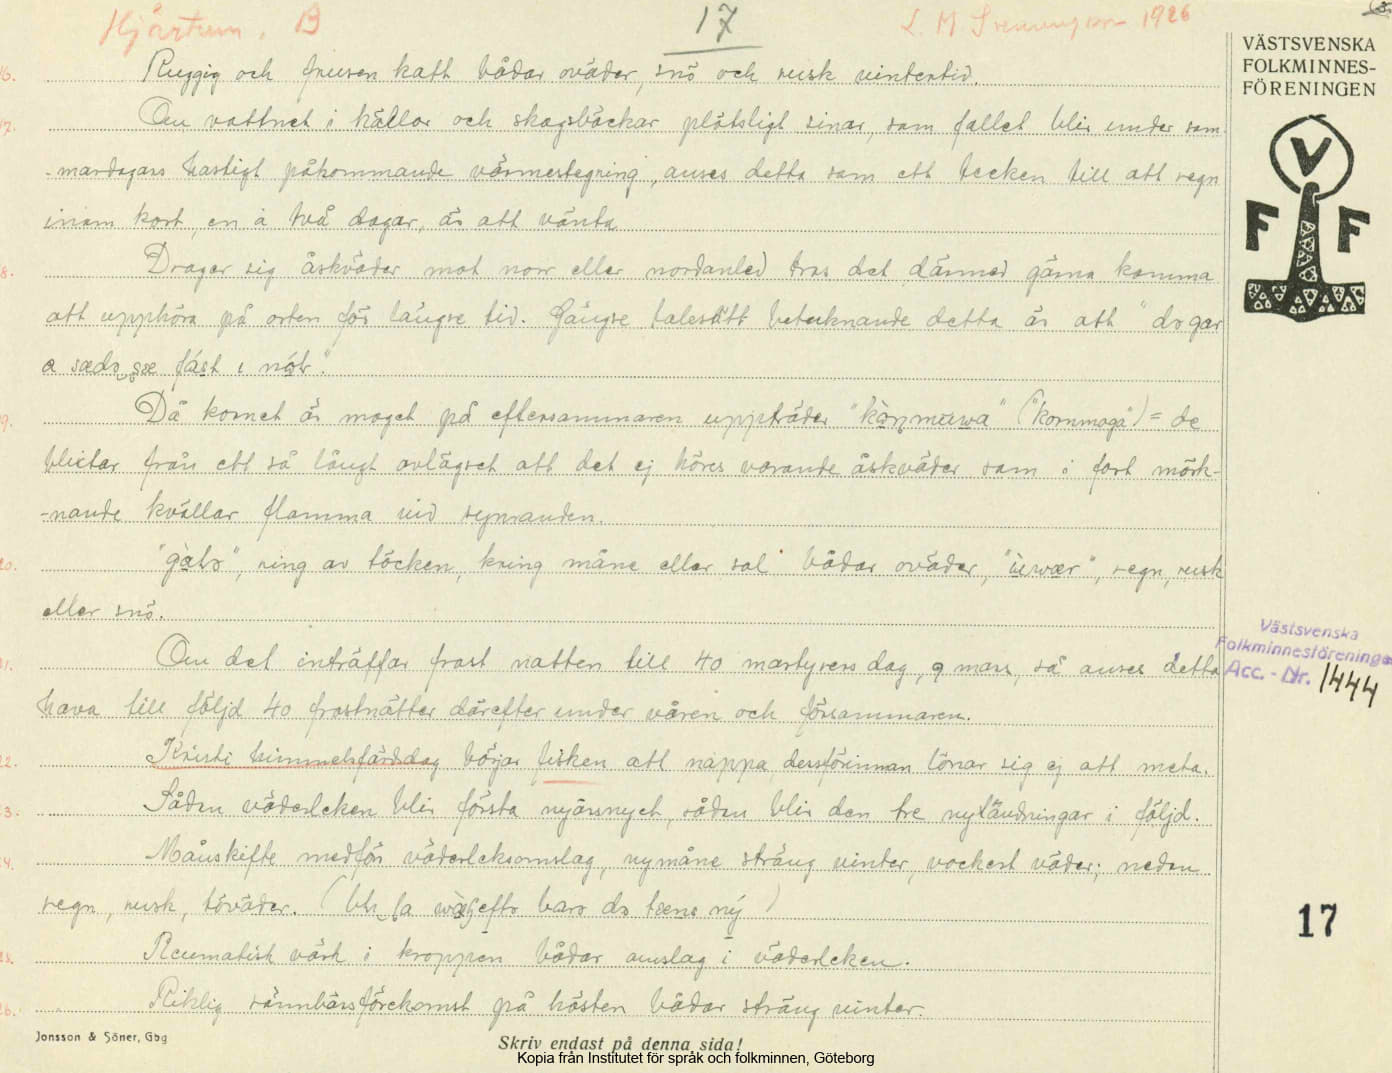 Hjärtum. B
17
L. M Svenungsson 1926
VÄSTSVENSKA
FOLKMINNES-
FÖRENINGEN
V
F F
16. Ruggig och frusen katt bådar oväder, snö och rusk vintertid.
17. Om vattnet i källor och skogsbäckar plötsligt sinar, som fallet blir under som-
-mardagars hastigt påkommande värmestegring, anses detta som ett tecken till att regn
inom kort, en à två dagar, är att vänta
18. Drager sig åskväder mot norr eller nordanled tros det därmed gärna komma
att upphöra på orten för längre tid. Gängse talesätt betecknande detta är att "dogar
fást i
19. Då kornet är moget på eftersommaren uppträder "kornmuwa" ("kornmoga") = de
blixtar från ett så långt avlägset att det ej höres varande åskväder som i fort mörk-
-nande kvällar flamma vid synranden.
20. ring av töcken, kring måne eller sol bådar oväder, "ùrwær", regn, rusk
eller snö.
21. Om det inträffar frost natten till 40 martyrers dag, 9 mars, så anses detta
hava till följd 40 frostnätter därefter under våren och försommaren.
22. Kristi himmelsfärdsdag börjar fisken att nappa, dessförinnan lönar sig ej att meta.
23. Sådan väderleken blir första nyårsnyet, sådan blir den tre nytändningar i följd.
24. Månskifte medför väderleksomslag, nymåne sträng vinter, vackert väder; nedan
regn, rusk, töväder.
25. Reumatisk värk i kroppen bådar omslag i väderleken.
26. Riklig rönnbärsförekomst på hösten bådar sträng vinter.
Västsvenska
Folkminnesföreningen
Acc. - Nr. 1444
17
Jonsson & Söner, Gbg
Skriv endast på denna sida!
Kopia från Institutet för språk och folkminnen, Göteborg